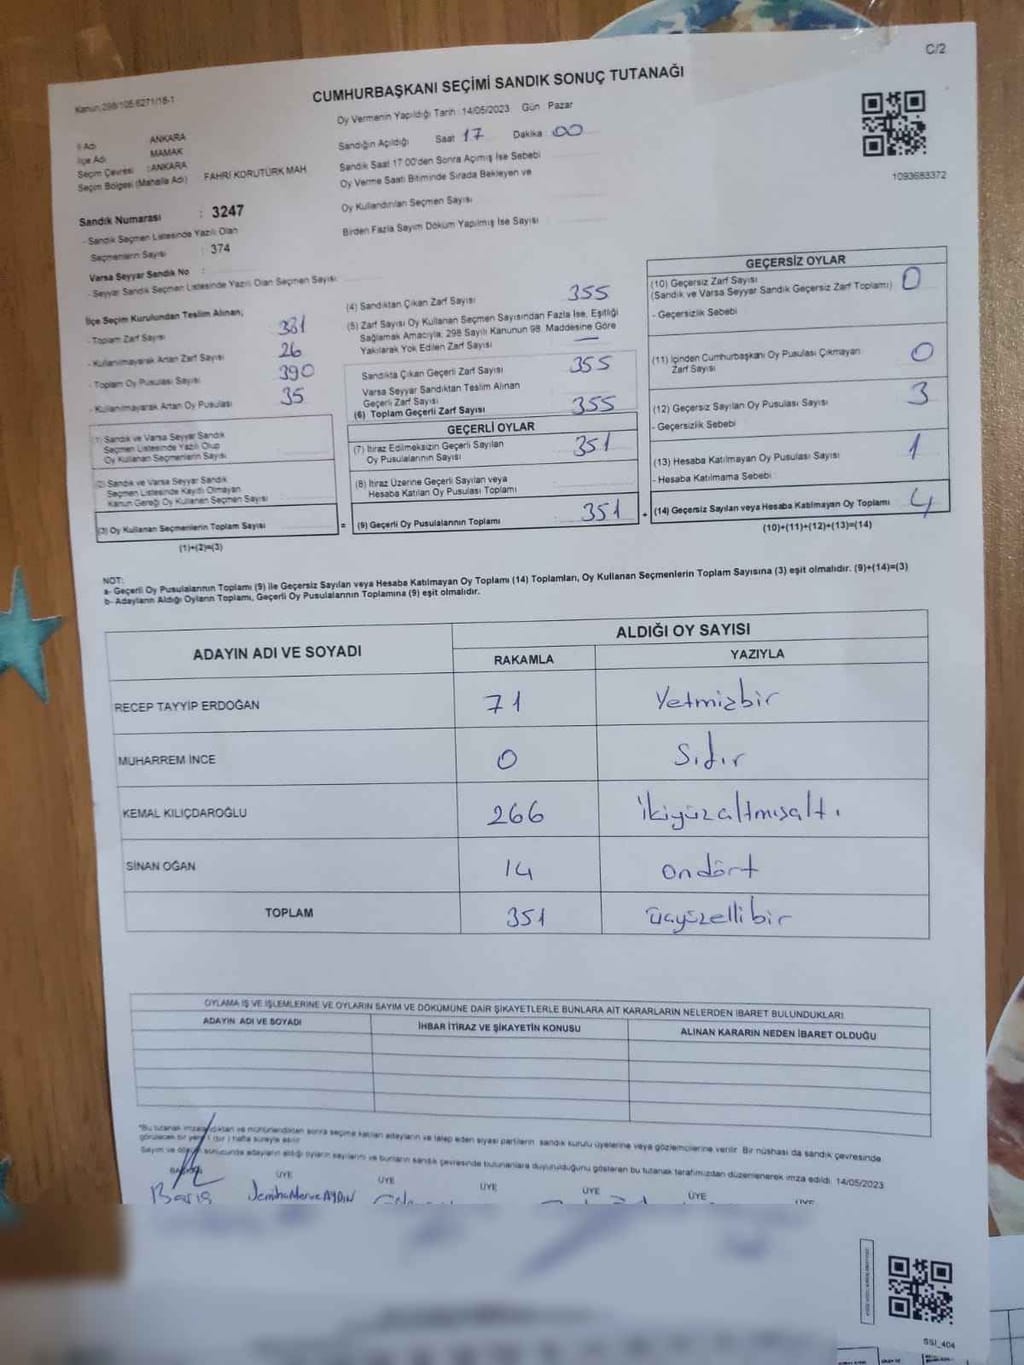 C/2
Kanun:298/105.6271/18-1
CUMHURBAŞKANI SEÇİMİ SANDIK SONUÇ TUTANAĞI
Oy Vermenin Yapıldığı Tarih : 14/05/2023 Gün Pazar
İl Adı ANKARA
İlçe Adı MAMAK
Seçim Çevresi : ANKARA
Seçim Bölgesi (Mahalle Adı) FAHRİ KORUTÜRK MAH
Sandık Numarası : 3247
- Sandık Seçmen Listesinde Yazılı Olan
Seçmenlerin Sayısı : 374
Varsa Seyyar Sandık No :
- Seyyar Sandık Seçmen Listesinde Yazılı Olan Seçmen Sayısı:
Sandığın Açıldığı Saat 17 Dakika 00
Sandık Saat 17:00'den Sonra Açımış İse Sebebi
Oy Verme Saati Bitiminde Sırada Bekleyen ve
Oy Kullandırılan Seçmen Sayısı
Birden Fazla Sayım Döküm Yapılmış İse Sayısı
1093683372
İlçe Seçim Kurulundan Teslim Alınan;
- Toplam Zarf Sayısı 381
- Kullanılmayarak Artan Zarf Sayısı 26
- Toplam Oy Pusulası Sayısı 390
- Kullanılmayarak Artan Oy Pusulası 35
(1) Sandık ve Varsa Seyyar Sandık
Seçmen Listesinde Yazılı Olup
Oy Kullanan Seçmenlerin Sayısı
(2) Sandık ve Varsa Seyyar Sandık
Seçmen Listesinde Kayıtlı Olmayan
Kanun Gereği Oy Kullanan Seçmen Sayısı
(3) Oy Kullanan Seçmenlerin Toplam Sayısı =
(1)+(2)=(3)
(4) Sandıktan Çıkan Zarf Sayısı 355
(5) Zarf Sayısı Oy Kullanan Seçmen Sayısından Fazla İse, Eşitliği
Sağlamak Amacıyla, 298 Sayılı Kanunun 98. Maddesine Göre
Yakılarak Yok Edilen Zarf Sayısı —
Sandıkta Çıkan Geçerli Zarf Sayısı 355
Varsa Seyyar Sandıktan Teslim Alınan
Geçerli Zarf Sayısı
(6) Toplam Geçerli Zarf Sayısı 355
GEÇERLİ OYLAR
(7) İtiraz Edilmeksizin Geçerli Sayılan
Oy Pusulalarının Sayısı 351
(8) İtiraz Üzerine Geçerli Sayılan veya
Hesaba Katılan Oy Pusulası Toplamı
(9) Geçerli Oy Pusulalarının Toplamı 351 +
GEÇERSİZ OYLAR
(10) Geçersiz Zarf Sayısı 0
(Sandık ve Varsa Seyyar Sandık Geçersiz Zarf Toplamı)
- Geçersizlik Sebebi
(11) İçinden Cumhurbaşkanı Oy Pusulası Çıkmayan 0
Zarf Sayısı
(12) Geçersiz Sayılan Oy Pusulası Sayısı 3
- Geçersizlik Sebebi
(13) Hesaba Katılmayan Oy Pusulası Sayısı 1
- Hesaba Katılmama Sebebi
(14) Geçersiz Sayılan veya Hesaba Katılmayan Oy Toplamı 4
(10)+(11)+(12)+(13)=(14)
NOT:
a- Geçerli Oy Pusulalarının Toplamı (9) ile Geçersiz Sayılan veya Hesaba Katılmayan Oy Toplamı (14) Toplamları, Oy Kullanan Seçmenlerin Toplam Sayısına (3) eşit olmalıdır. (9)+(14)=(3)
b- Adayların Aldığı Oyların Toplamı, Geçerli Oy Pusulalarının Toplamına (9) eşit olmalıdır.
ADAYIN ADI VE SOYADI ALDIĞI OY SAYISI
RAKAMLA YAZIYLA
RECEP TAYYİP ERDOĞAN 71 Yetmişbir
MUHARREM İNCE 0 Sıfır
KEMAL KILIÇDAROĞLU 266 ikiyüzaltmışaltı
SİNAN OĞAN 14 ondört
TOPLAM 351 üçyüzellibir
OYLAMA İŞ VE İŞLEMLERİNE VE OYLARIN SAYIM VE DÖKÜMÜNE DAİR ŞİKAYETLERLE BUNLARA AİT KARARLARIN NELERDEN İBARET BULUNDUKLARI
ADAYIN ADI VE SOYADI İHBAR İTİRAZ VE ŞİKAYETİN KONUSU ALINAN KARARIN NEDEN İBARET OLDUĞU
*Bu tutanak imzalandıktan ve mühürlendikten sonra seçime katılan adayların ve talep eden siyasi partilerin sandık kurulu üyelerine veya gözlemcilerine verilir. Bir nüshası da sandık çevresinde
görülecek bir yere 1 (bir) hafta süreyle asılır.
Sayım ve döküm sonucunda adayların aldığı oyların sayılarını ve bunların sandık çevresinde bulunanlara duyurulduğunu gösteren bu tutanak tarafımızdan düzenlenerek imza edildi. 14/05/2023
BAŞKAN ÜYE ÜYE ÜYE ÜYE ÜYE ÜYE
Barış AYDIN
SSI_404